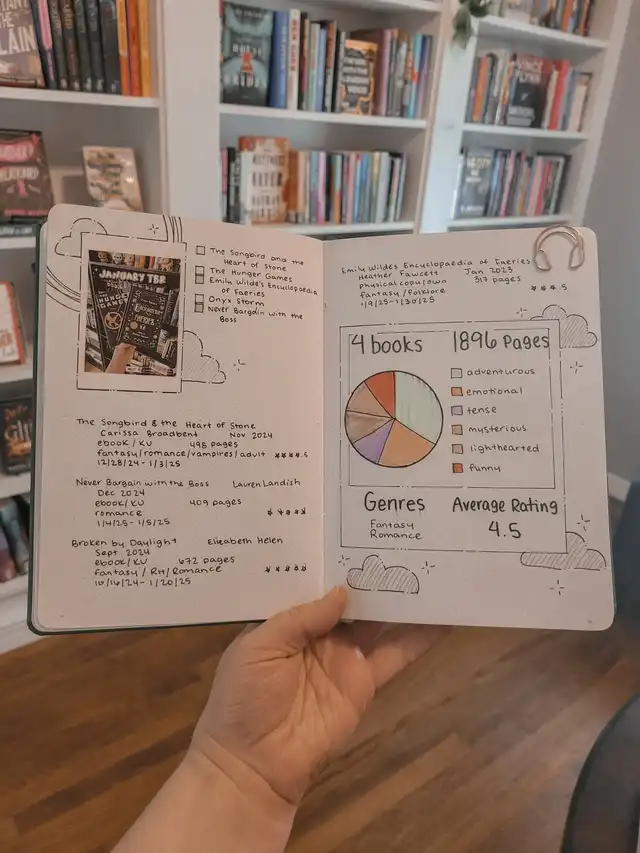 JANUARY TBR
The Songbird and the
Heart of Stone
The Hunger Games
Emily Wilde's Encyclopaedia
of Faeries
Onyx Storm
Never Bargain with the
Boss
The Songbird & the Heart of Stone
Carissa Broadbent Nov 2024
ebook/KU 496 pages
fantasy/romance/vampires/adult ★★★★.5
12/28/24-1/3/25
Never Bargain with the Boss Lauren Landish
Dec 2024
ebook/KU 409 pages
romance ★★★★
1/4/25-1/5/25
Broken by Daylight Elizabeth Helen
Sept 2024
ebook/KU 672 pages
fantasy/RH/Romance ★★★★★
10/16/24-1/20/25
Emily Wildes Encyclopaedia of Faeries
Heather Fawcett Jan 2023
physical copy/own 317 pages
fantasy/folklore ★★★★.5
1/9/25-1/30/25
4 books 1896 Pages
adventurous
emotional
tense
mysterious
lighthearted
funny
Genres
Fantasy
Romance
Average Rating
4.5